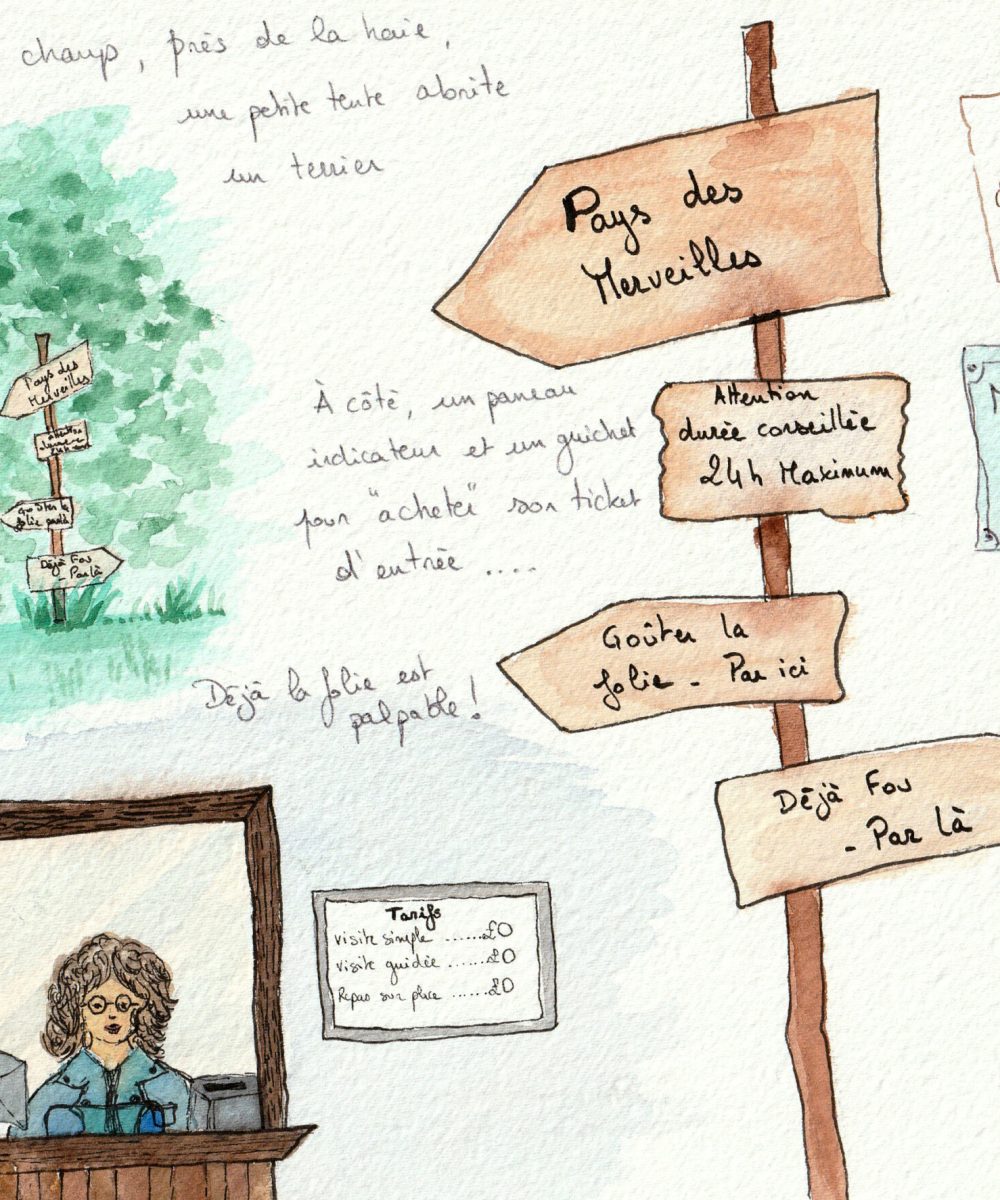 champ, près de la haie,
une petite tente abrite
un terrier
Pays des
Merveilles
À côté, un panneau
indicateur et un guichet
pour "acheter" son ticket
d'entrée ....
Attention
durée conseillée
24h Maximum
Goûter la
folie - Par ici
Déjà la folie est
palpable !
Déjà Fou
- Par là
Pays des
Merveilles
Goûter la
folie par là
Déjà Fou
- Par là
Tarifs
visite simple ......£0
visite guidée ......£0
Repas sur place ......£0